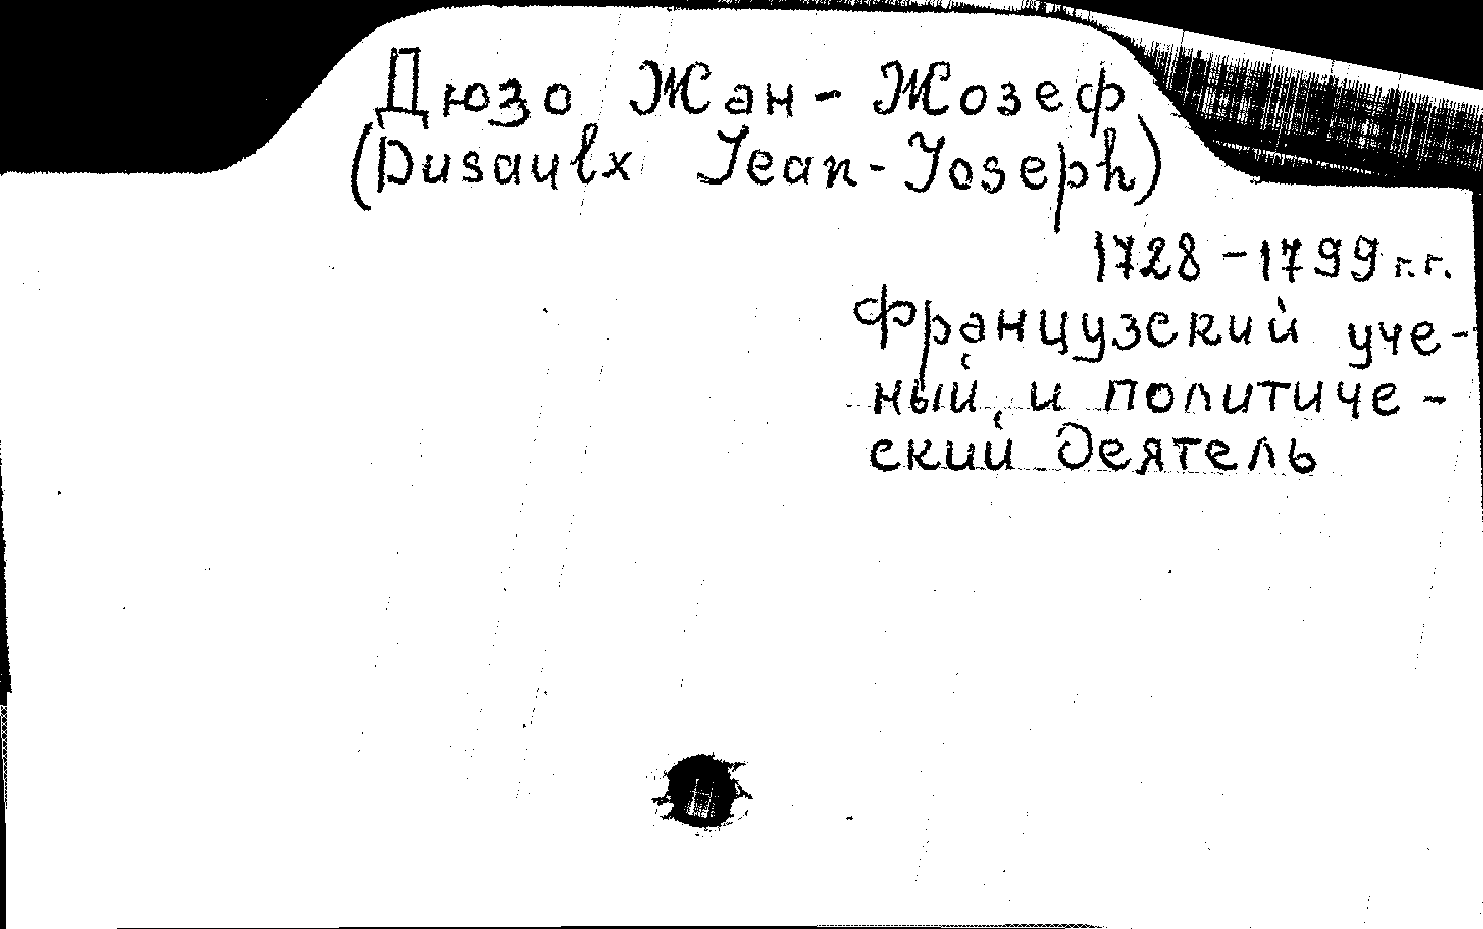 Дюзо Жан-Жозеф
(Dusaulx Jean-Joseph)
1728-1799 г.г.
Французский уче-
ный и политиче-
ский деятель